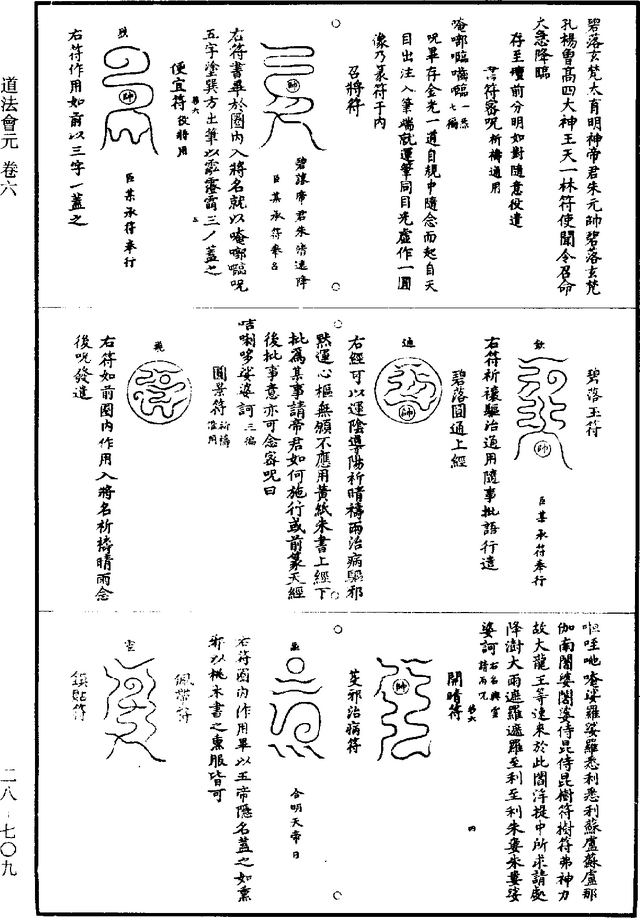 碧落玄梵太育明神帝君朱元帥碧落玄梵
孔楊曹高四大神王天一林符使聞令召命
火急降臨
存至壇前分明如對隨意役遣
書符密呪祈禱通用
唵啷㘑嚅㘑一炁七遍
呪畢存金光一道自規中隨念而起自天
目出注入筆端就運筆同目光虛作一圓
像乃篆符于内
召將符
帥
碧讓帝君朱浩速降
臣某承符奉名
右符書畢於圈内入將名就以唵啷㘑呪
五字塗巽方出筆以霐靐霤三ノ蓋之
便宜符役將用
帥
臣某承符奉行
右符作用如前以三字一蓋之
碧落玉符
欽
帥
臣某承符奉行
右符祈禳驅治通用隨事批語行遣
碧落圓通上經
通
帥
右經可以運陰導陽祈晴禱雨治病驅邪
默運心樞無頻不應用黃紙朱書上經下
批爲某事請帝君如何施行或前篆天經
後批事意亦可念密呪曰
唭唎哆娑婆訶三遍
圓景符祈禱准用
右符如前圈内作用入將名祈禱晴雨念
後呪發遣
伽南闍婆闍婆侍昆侍昆樹符樹符弗神力
故大龍王等速來於此閻浮提中所求請處
降澍大雨遮羅遮羅至利至利朱婁朱婁娑
婆訶
開晴符
帥
芟邪治病符
合明天帝日
右符圈内作用畢以五帝隱名蓋之如熏
邪以桃木書之熏服皆可
佩帶符
鎮貼符
道法會元 卷六
二八-七〇九